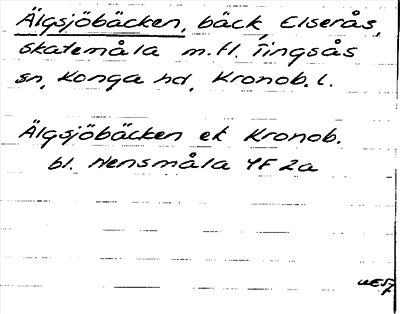 Älgsjöbäcken, bäck Elserås,
Skatemåla m.fl. Tingsås
sn, Konga hd, Kronob. l.
Älgsjöbäcken ek Kronob.
bl. Hensmåla 4F 2a